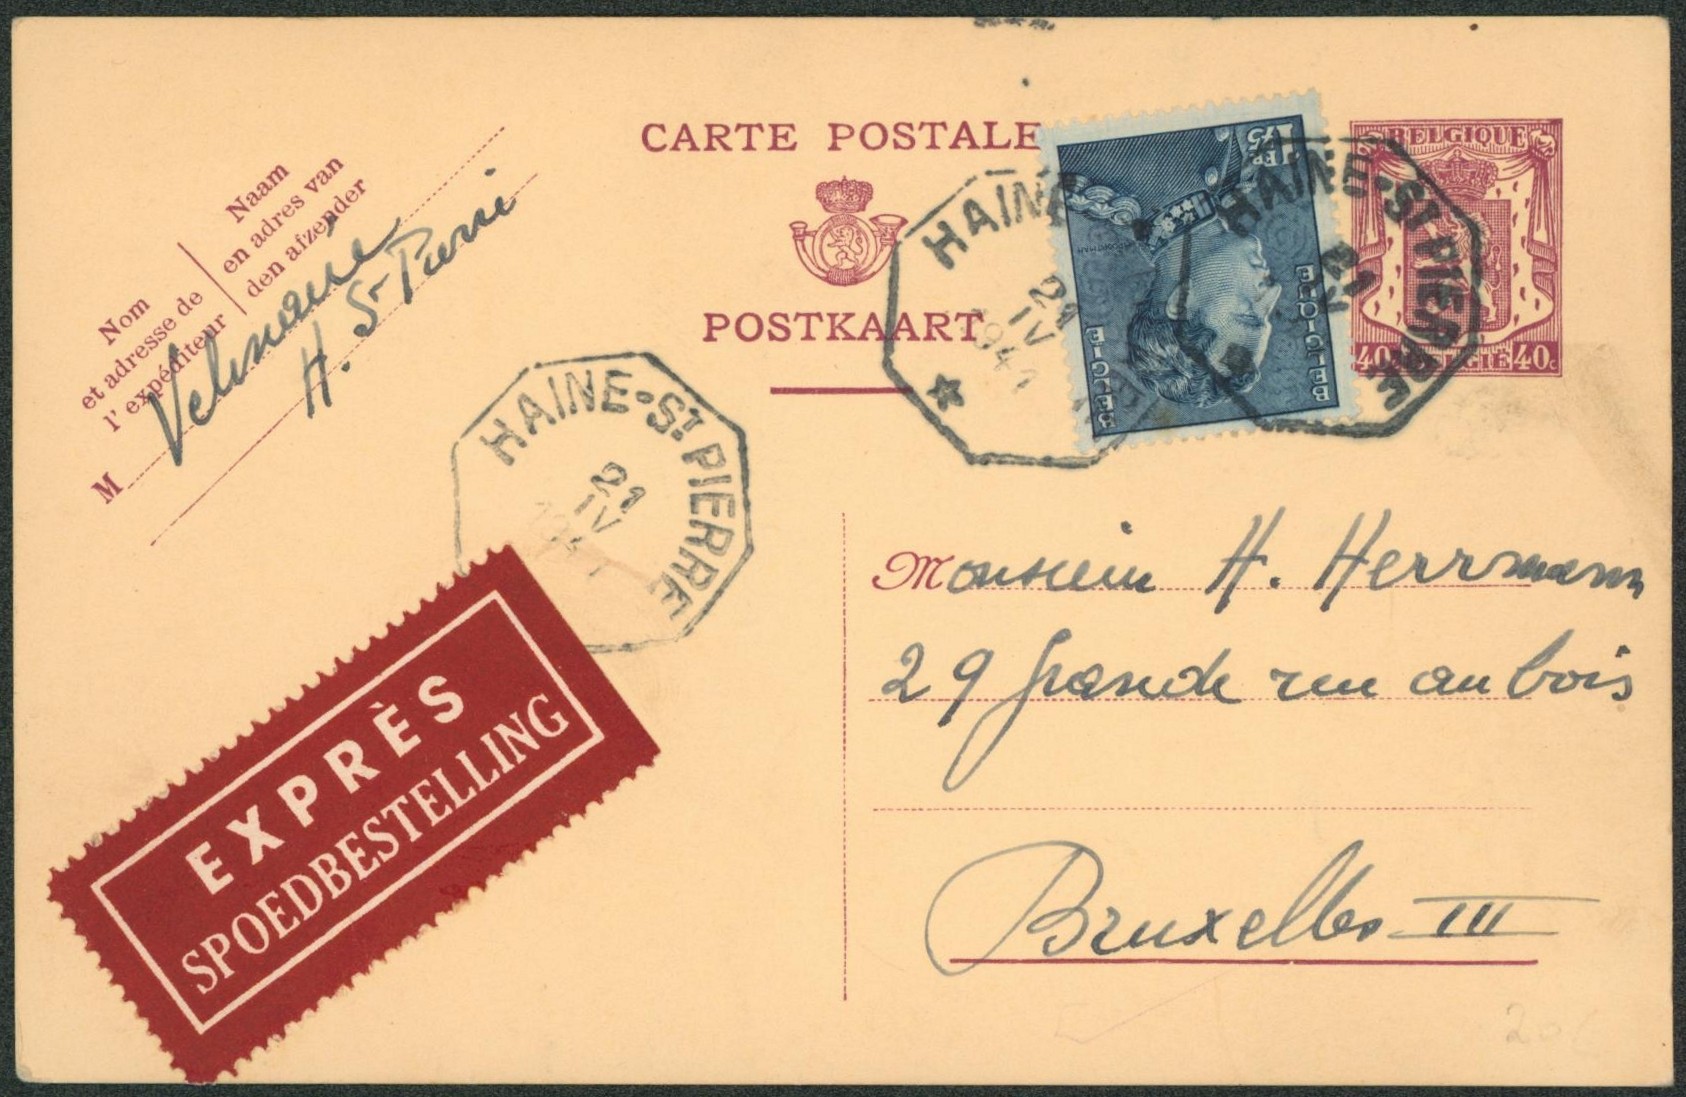 CARTE POSTALE
POSTKAART
Naam
en adres van
den afzender
Nom
et adresse de
l'expéditeur
M
H. St Pierre
HAINE-ST PIERRE
21
IV
HAINE
21
IV
1941
HAINE-ST PIERRE
21
1 FR 75
BELGIQUE
BELGIE
BELGIQUE
40c BELGIE 40c
EXPRÈS
SPOEDBESTELLING
Monsieur H. Herrmann
29 grande rue au bois
Bruxelles III